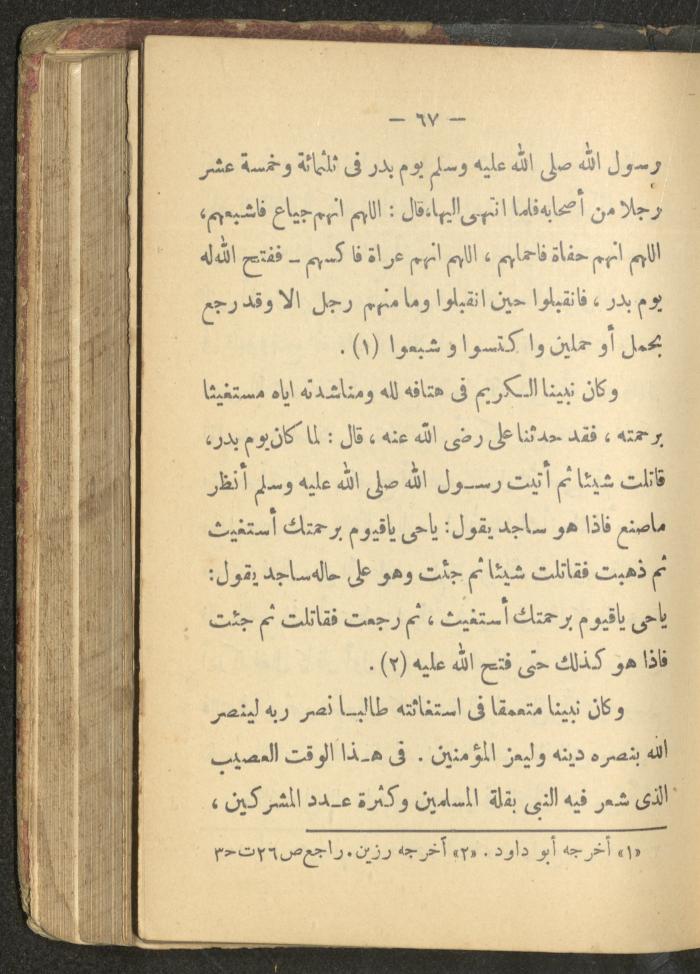 — ٦٧ —
رسول الله صلى الله عليه وسلم يوم بدر فى ثلثمائة وخمسة عشر
رجلا من أصحابه فلما انتهى اليها، قال : اللهم انهم جياع فاشبعهم،
اللهم انهم حفاة فاحملهم ، اللهم انهم عراة فاكسهم – ففتح الله له
يوم بدر ، فانقبلوا حين انقبلوا وما منهم رجل الا وقد رجع
بحمل أو حملين واكتسوا و شبعوا (١) .
وكان نبينا الكريم فى هتافه لله ومناشدته اياه مستغيثا
برحمته ، فقد حدثنا على رضى الله عنه ، قال : لما كان يوم بدر،
قاتلت شيئا ثم أتيت رسول الله صلى الله عليه وسلم أنظر
ماصنع فاذا هو ساجد يقول: ياحى ياقيوم برحمتك أستغيث
ثم ذهبت فقاتلت شيئا ثم جئت وهو على حاله ساجد يقول:
ياحى ياقيوم برحمتك أستغيث ، ثم رجعت فقاتلت ثم جئت
فاذا هو كذلك حتى فتح الله عليه (٢) .
وكان نبينا متعمقا فى استغاثته طالبا نصر ربه لينصر
الله بنصره دينه وليعز المؤمنين . فى هذا الوقت العصيب
الذى شعر فيه النبى بقلة المسلمين وكثرة عدد المشركين ،
«١» أخرجه أبو داود . «٢» أخرجه رزين. راجع ص ٢٦ت ح٣